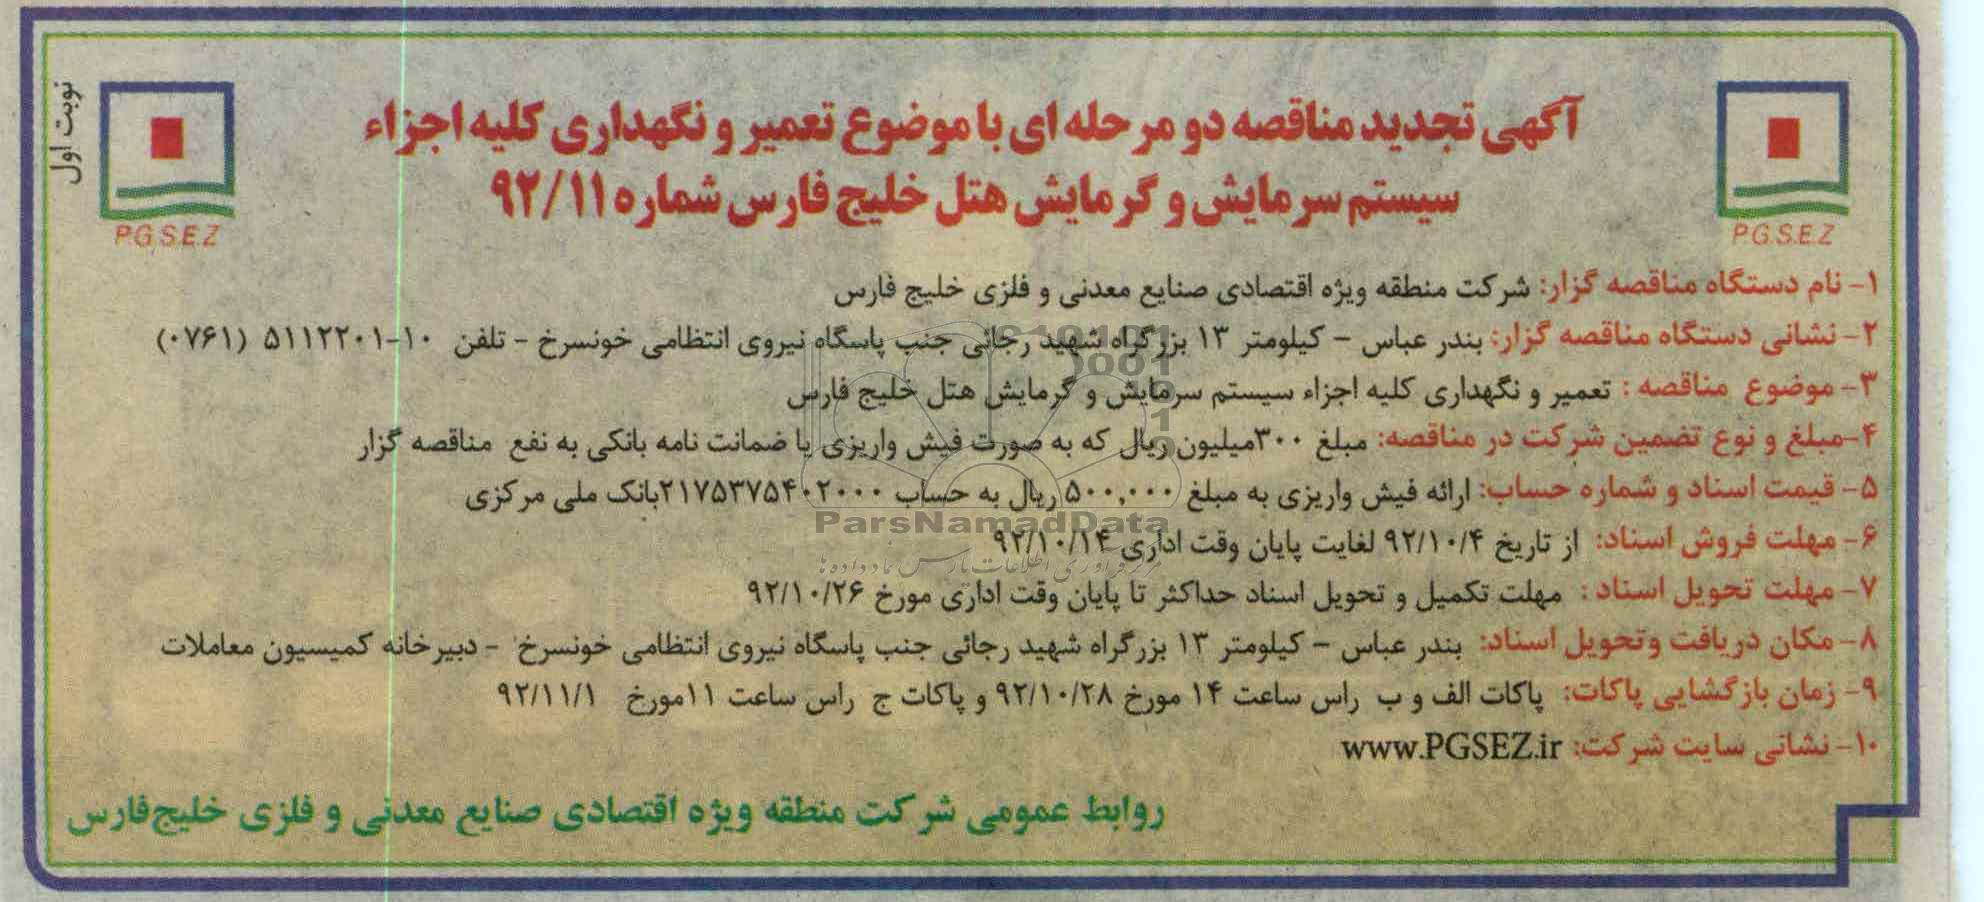 نوبت اول
آگهی تجدید مناقصه دو مرحله ای با موضوع تعمیر و نگهداری کلیه اجزاء
سیستم سرمایش و گرمایش هتل خلیج فارس شماره ۹۲/۱۱
P.G.S.E.Z
P.G.S.E.Z
۱- نام دستگاه مناقصه گزار: شرکت منطقه ویژه اقتصادی صنایع معدنی و فلزی خلیج فارس
۲- نشانی دستگاه مناقصه گزار: بندر عباس – کیلومتر ۱۳ بزرگراه شهید رجائی جنب پاسگاه نیروی انتظامی خونسرخ - تلفن ۱۰-۵۱۱۲۲۰۱ (۰۷۶۱)
۳- موضوع مناقصه : تعمیر و نگهداری کلیه اجزاء سیستم سرمایش و گرمایش هتل خلیج فارس
۴-مبلغ و نوع تضمین شرکت در مناقصه: مبلغ ۳۰۰میلیون ریال که به صورت فیش واریزی یا ضمانت نامه بانکی به نفع مناقصه گزار
۵- قیمت اسناد و شماره حساب: ارائه فیش واریزی به مبلغ ۵۰۰,۰۰۰ ریال به حساب ۲۱۷۵۳۷۵۴۰۲۰۰۰بانک ملی مرکزی
۶- مهلت فروش اسناد: از تاریخ ۹۲/۱۰/۴ لغایت پایان وقت اداری ۹۲/۱۰/۱۴
۷- مهلت تحویل اسناد : مهلت تکمیل و تحویل اسناد حداکثر تا پایان وقت اداری مورخ ۹۲/۱۰/۲۶
۸- مکان دریافت وتحویل اسناد: بندر عباس – کیلومتر ۱۳ بزرگراه شهید رجائی جنب پاسگاه نیروی انتظامی خونسرخ - دبیرخانه کمیسیون معاملات
۹- زمان بازگشایی پاکات: پاکات الف و ب راس ساعت ۱۴ مورخ ۹۲/۱۰/۲۸ و پاکات ج راس ساعت ۱۱مورخ ۹۲/۱۱/۱
۱۰- نشانی سایت شرکت: www.PGSEZ.ir
روابط عمومی شرکت منطقه ویژه اقتصادی صنایع معدنی و فلزی خلیج‌فارس
ParsNamadData